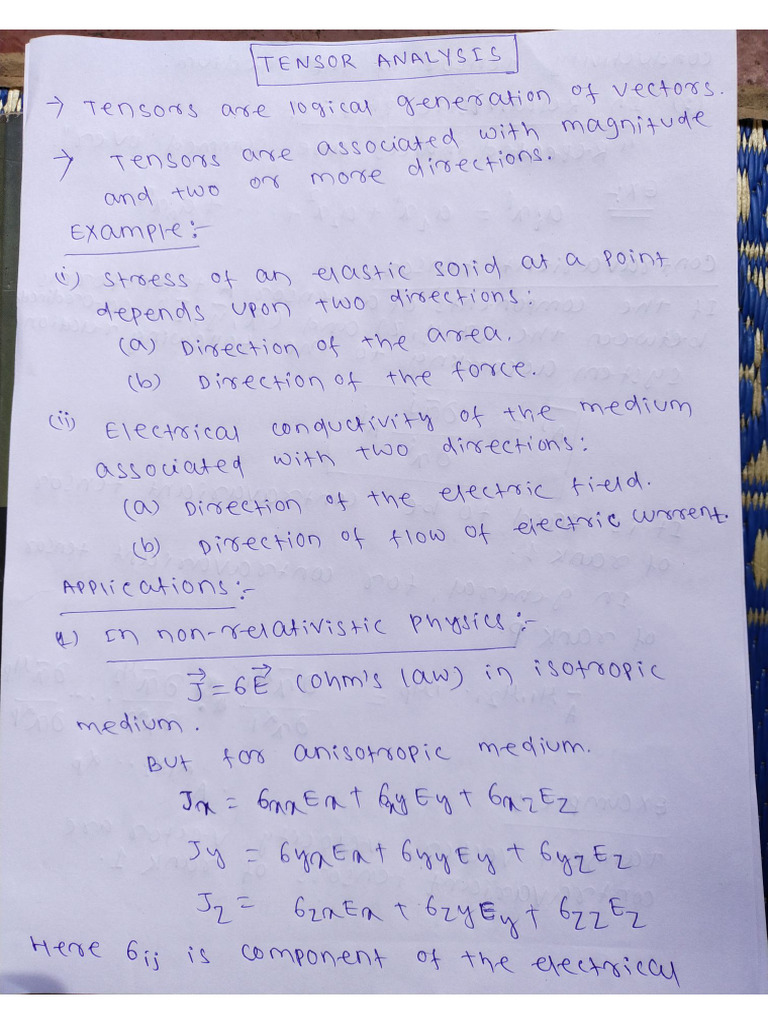 TENSOR ANALYSIS
→ Tensors are logical generation of vectors.
→ Tensors are associated with magnitude
and two or more directions.
Example:-
(i) Stress of an elastic solid at a point
depends upon two directions:
(a) Direction of the area.
(b) Direction of the force.
(ii) Electrical conductivity of the medium
associated with two directions:
(a) Direction of the electric field.
(b) Direction of flow of electric current.
Applications:-
1) In non-relativistic physics:-
J⃗ = σE⃗ (ohm's law) in isotropic
medium.
But for anisotropic medium.
Jx = σxxEx + σxyEy + σxzEz
Jy = σyxEx + σyyEy + σyzEz
Jz = σzxEx + σzyEy + σzzEz
Here σij is component of the electrical